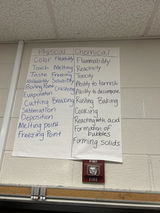 Physical
Color Flexibility
Touch Melting
Taste Freezing
Solubility
Boiling Point
Evaporation
Cutting Breaking
Sublimation
Deposition
Melting point
Freezing Point
Chemical
Flammability
Reactivity
Toxicity
Ability to tarnish
Ability to decompose
Rusting Baking
Cooking
Reacting with acid
Formation of
bubbles
Forming Solids
FIRE